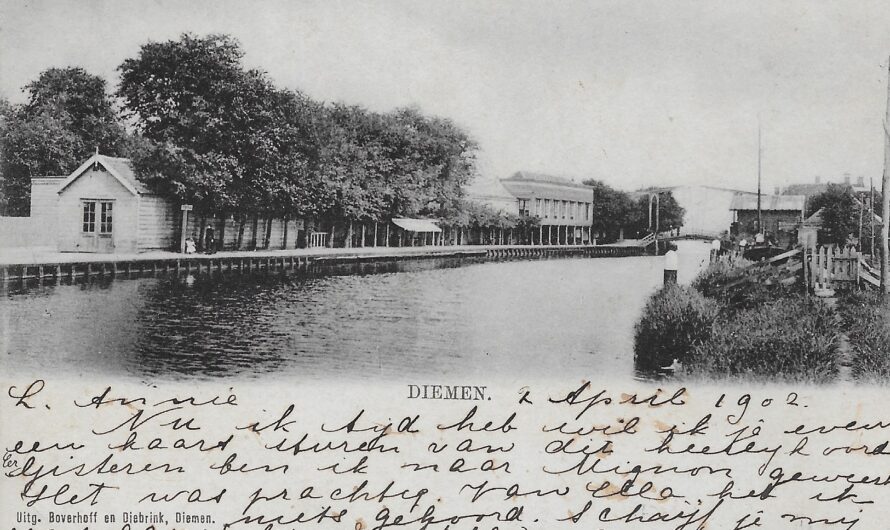 DIEMEN.
2 April 1902.
L. Annie
Nu ik tyd heb wil ik je even
een kaart sturen van dit heerlyk oord
Gisteren ben ik naar Mignon geweest
Het was prachtig. Van Ella heb ik
niets gehoord. Schryf je my
Uitg. Boverhoff en Diebrink, Diemen.